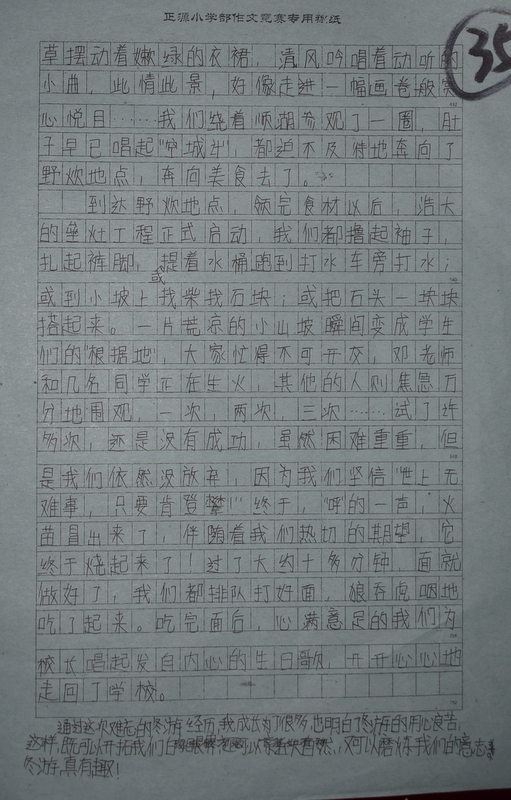 正源小学部作文竞赛专用稿纸
35
草摆动着嫩绿的衣裙，清风吟唱着动听的
小曲，此情此景，好像走进一幅画卷般赏
心悦目……我们绕着顺湖参观了一圈，肚
子早已唱起“空城计”，都迫不及待地奔向了
野炊地点，奔向美食去了。
到达野炊地点，领完食材以后，浩大
的垒灶工程正式启动，我们都撸起袖子，
扎起裤脚，或提着水桶跑到打水车旁打水；
或到小坡上找柴找石块；或把石头一块块
搭起来。一片荒凉的小山坡瞬间变成学生
们的“根据地”，大家忙得不可开交，邓老师
和几名同学正在生火，其他的人则焦急万
分地围观，一次，两次，三次……试了许
多次，还是没有成功，虽然困难重重，但
是我们依然没放弃，因为我们坚信“世上无
难事，只要肯登攀！”终于，“呼”的一声，火
苗冒出来了，伴随着我们热切的期望，它
终于烧起来了！过了大约十多分钟，面就
做好了，我们都排队打好面，狼吞虎咽地
吃了起来。吃完面后，心满意足的我们为
校长唱起发自内心的生日歌，开开心心地
走回了学校。
通过这次难忘的冬游经历，我成长了很多，也明白了冬游的用心良苦，
这样，既可以开拓我们的眼界，又可以磨炼我们的意志
冬游，真有趣！